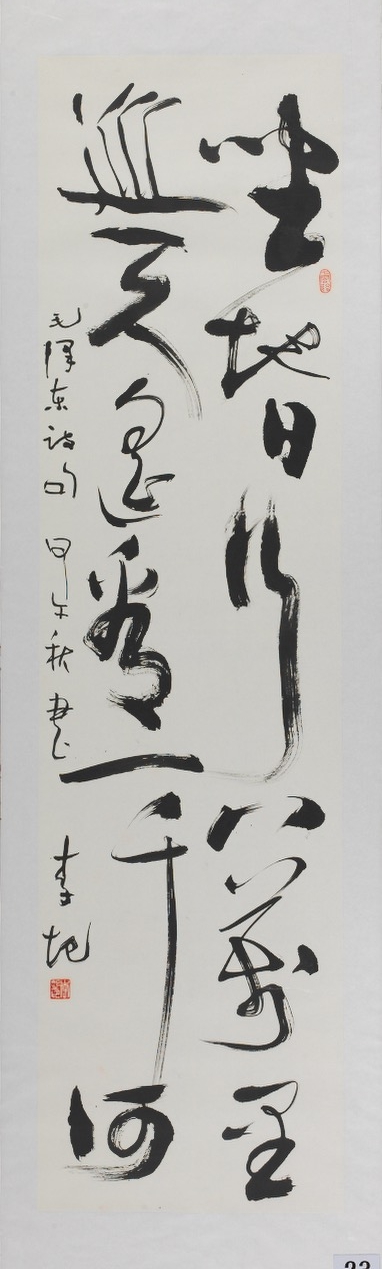 坐地日行八萬里
巡天遥看一千河
毛泽东诗句 甲午秋书 李